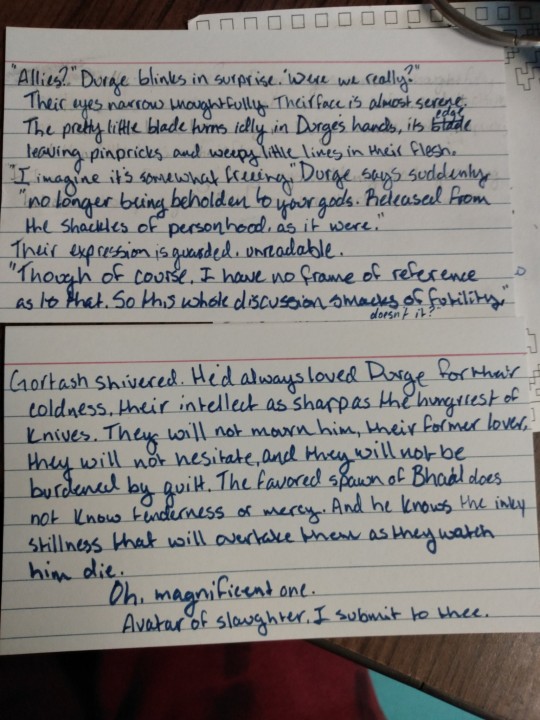 "Allies?" Durge blinks in surprise. "Were we really?"
Their eyes narrow thoughtfully. Their face is almost serene.
The pretty little blade turns idly in Durge's hands, its edge
leaving pinpricks and weepy little lines in their flesh.
"I imagine it's somewhat freeing," Durge says suddenly
"no longer being beholden to your gods. Released from
the shackles of personhood, as it were."
Their expression is guarded, unreadable.
"Though of course, I have no frame of reference
as to that. So this whole discussion smacks of futility,"
doesn't it?
Gortash shivered. He'd always loved Durge for their
coldness, their intellect as sharp as the hungriest of
knives. They will not mourn him, their former lover,
they will not hesitate, and they will not be
burdened by guilt. The favored spawn of Bhaal does
not know tenderness or mercy. And he knows the inky
stillness that will overtake them as they watch
him die.
Oh, magnificent one.
Avatar of slaughter. I submit to thee.